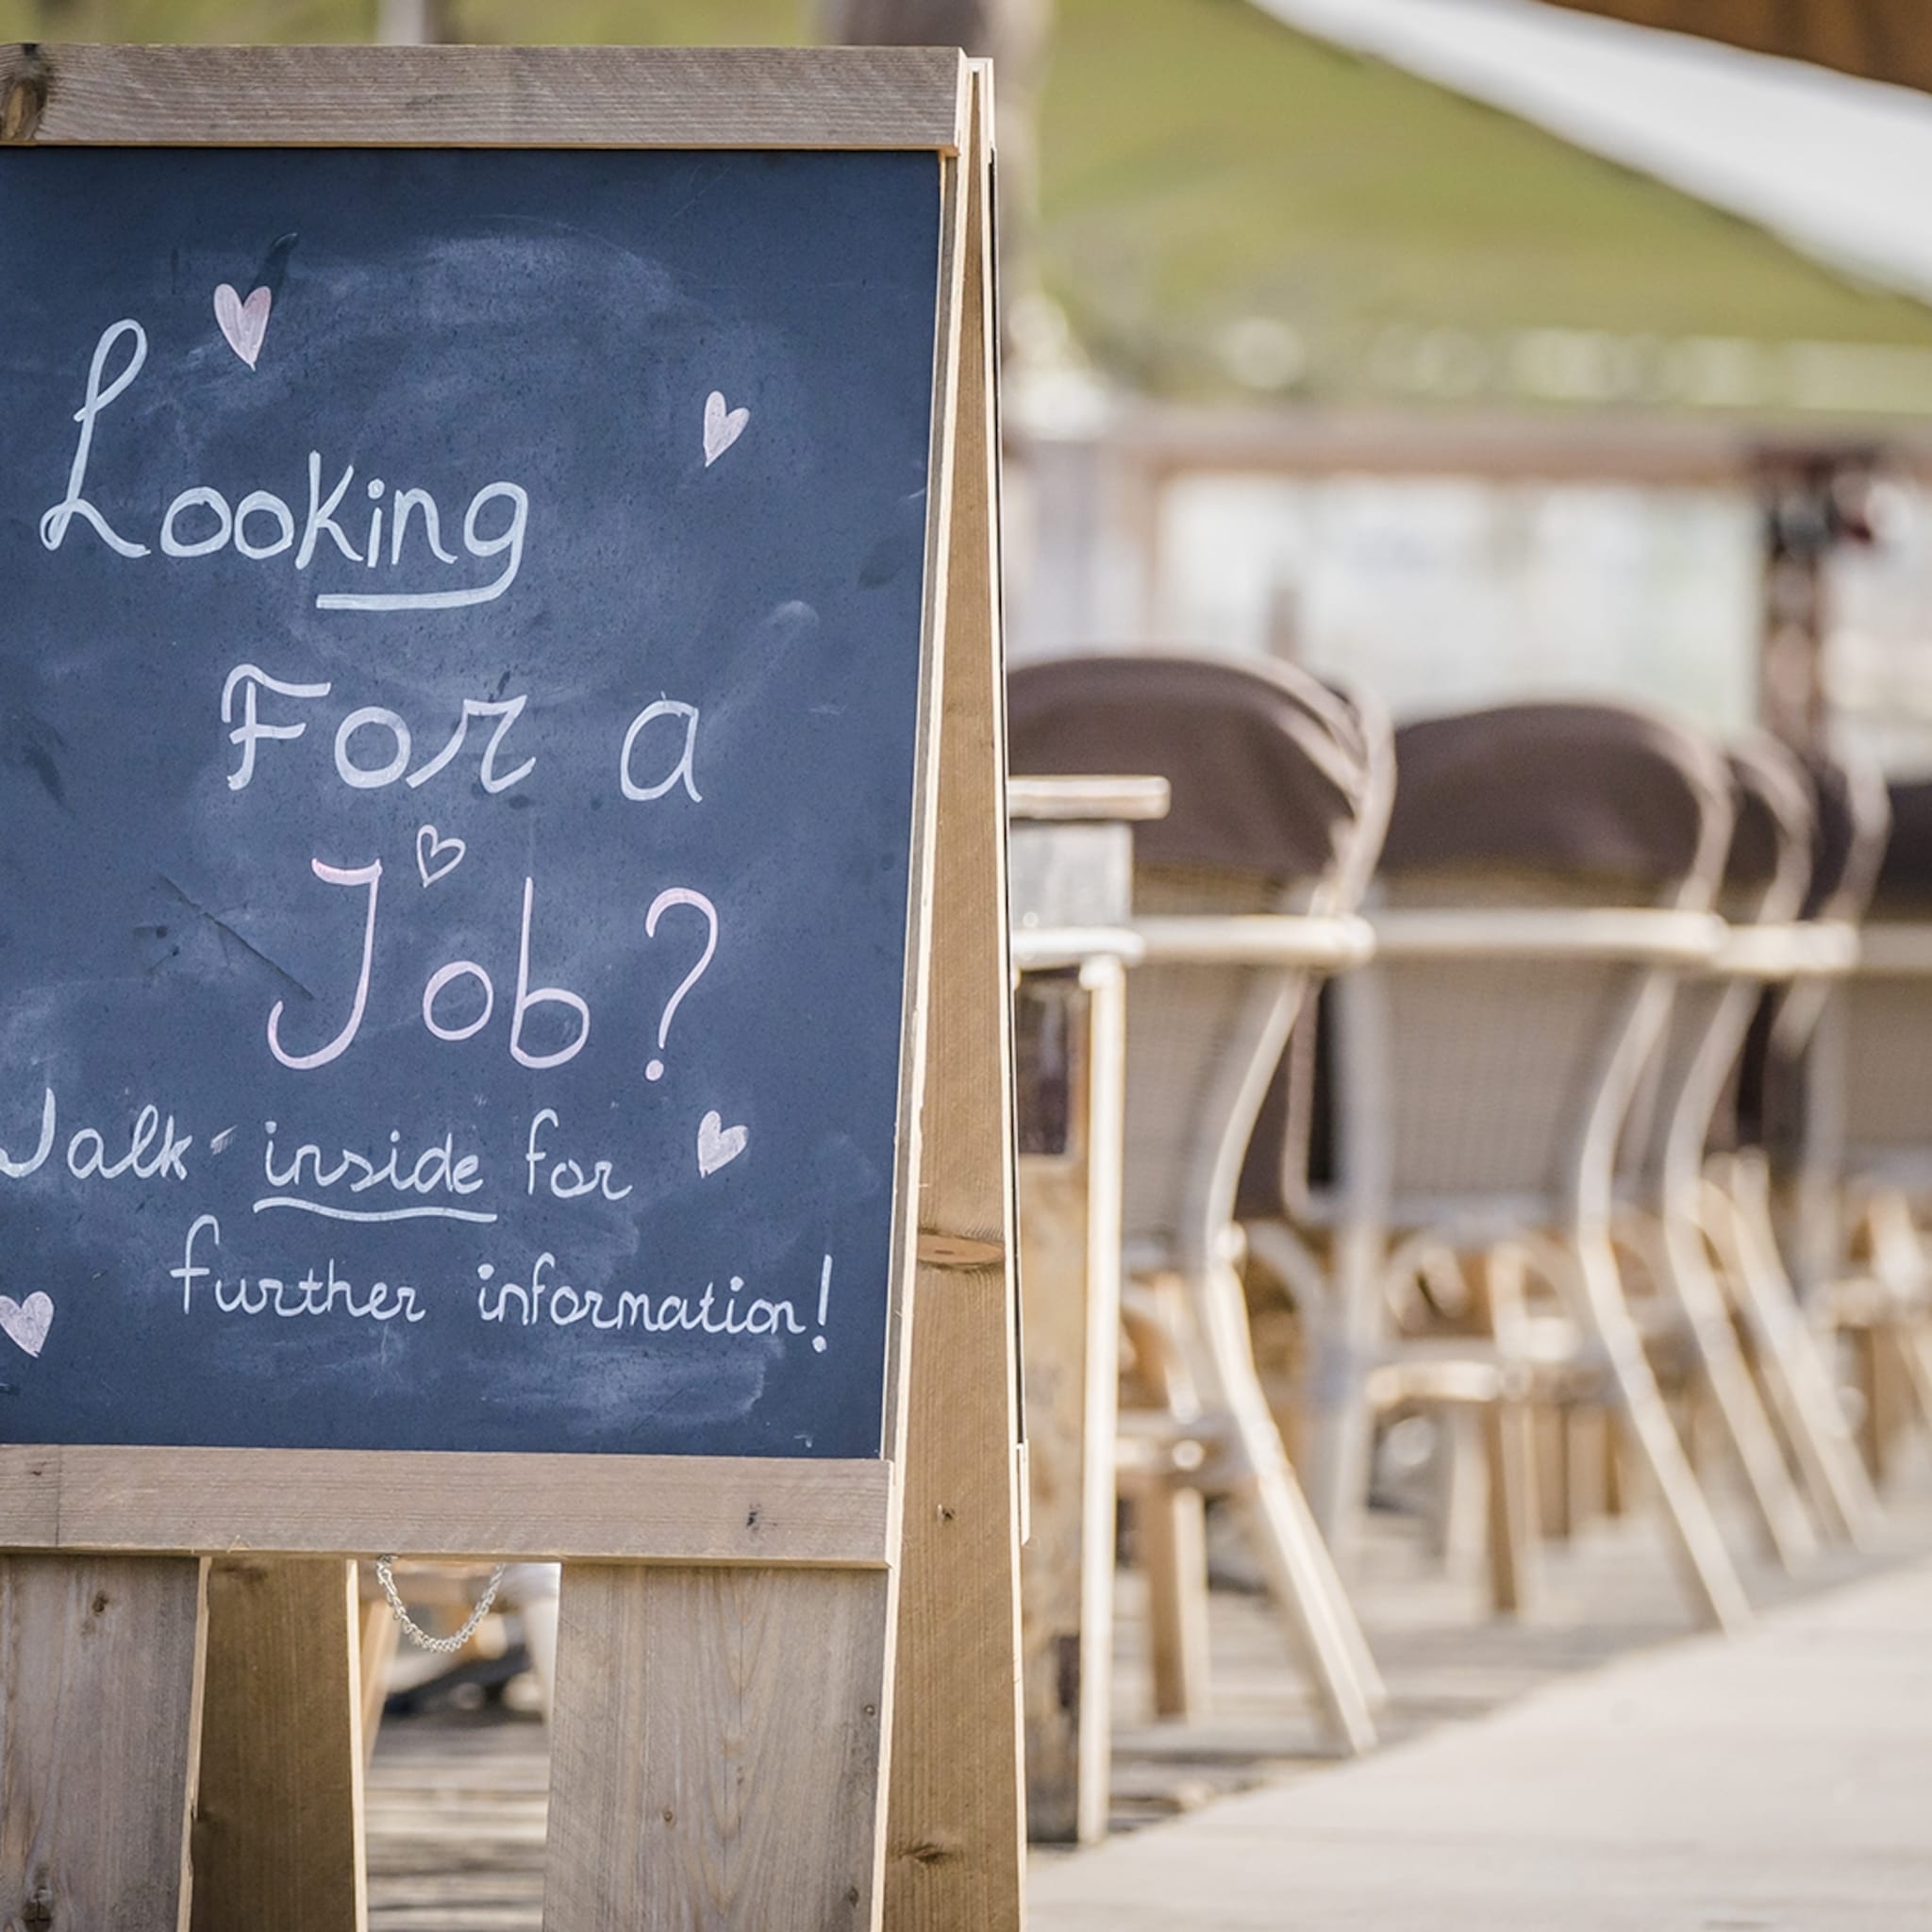 Looking
For a
Job?
Walk inside for
further information!